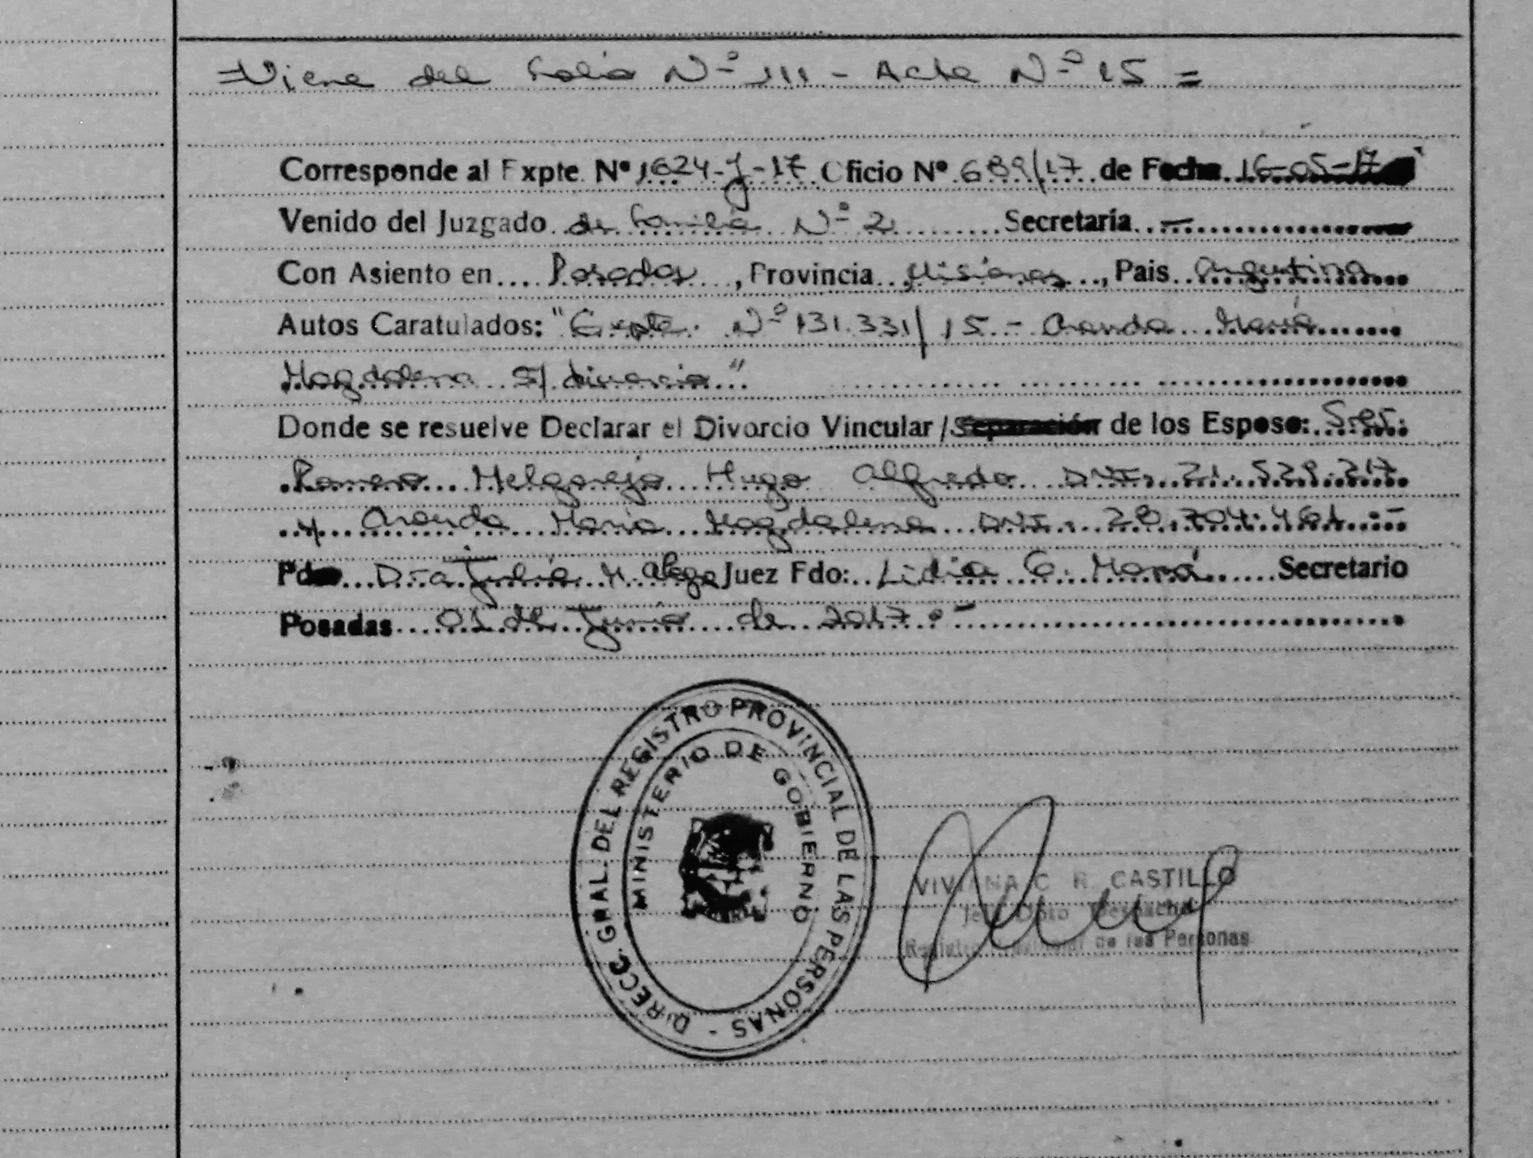 =Viene del Folio Nº 111 - Acta Nº 15 =
Corresponde al Expte. Nº 1624-J-17 Oficio Nº 689/17 de Fecha 16-05-17
Venido del Juzgado de Familia Nº 2 Secretaría
Con Asiento en Posadas, Provincia Misiones, Pais Argentina
Autos Caratulados: "Expte. Nº 131.331/15 - Aranda María
Magdalena s/ divorcio"
Donde se resuelve Declarar el Divorcio Vincular / Separación de los Esposo: Sres.
Romero Melgarejo Hugo Alfredo DNI. 21.529.217
y Aranda María Magdalena DNI. 28.704.461.-
Dra Julia M. Alega Juez Fdo: Lidia C. Secretario
Posadas 01 de Junio de 2017.-
DIRECC. GRAL. DEL REGISTRO PROVINCIAL DE LAS PERSONAS -
MINISTERIO DE GOBIERNO
VIVIANA C R. CASTILLO
Jefe Dpto Despacho
Registro Provincial de las Personas